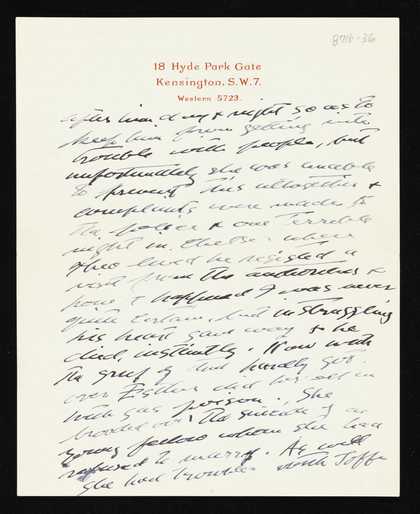 8716-36
18 Hyde Park Gate
Kensington. S.W.7.
Western 5723.
after him day & night so as to
keep him from getting into
trouble with people, but
unfortunately she was unable
to prevent this altogether &
complaints were made to
the police & one terrible
night in Chelsea where
Theo lived he resisted a
visit from the authorities &
how it happened I was never
quite certain, but in struggling
his heart gave way & he
died, instantly. Now with
the grief of that hardly got
over Esther did her self in
with gas poison. She
brooded over the suicide of a
young fellow whom she had
refused to marry. As well
she had trouble with